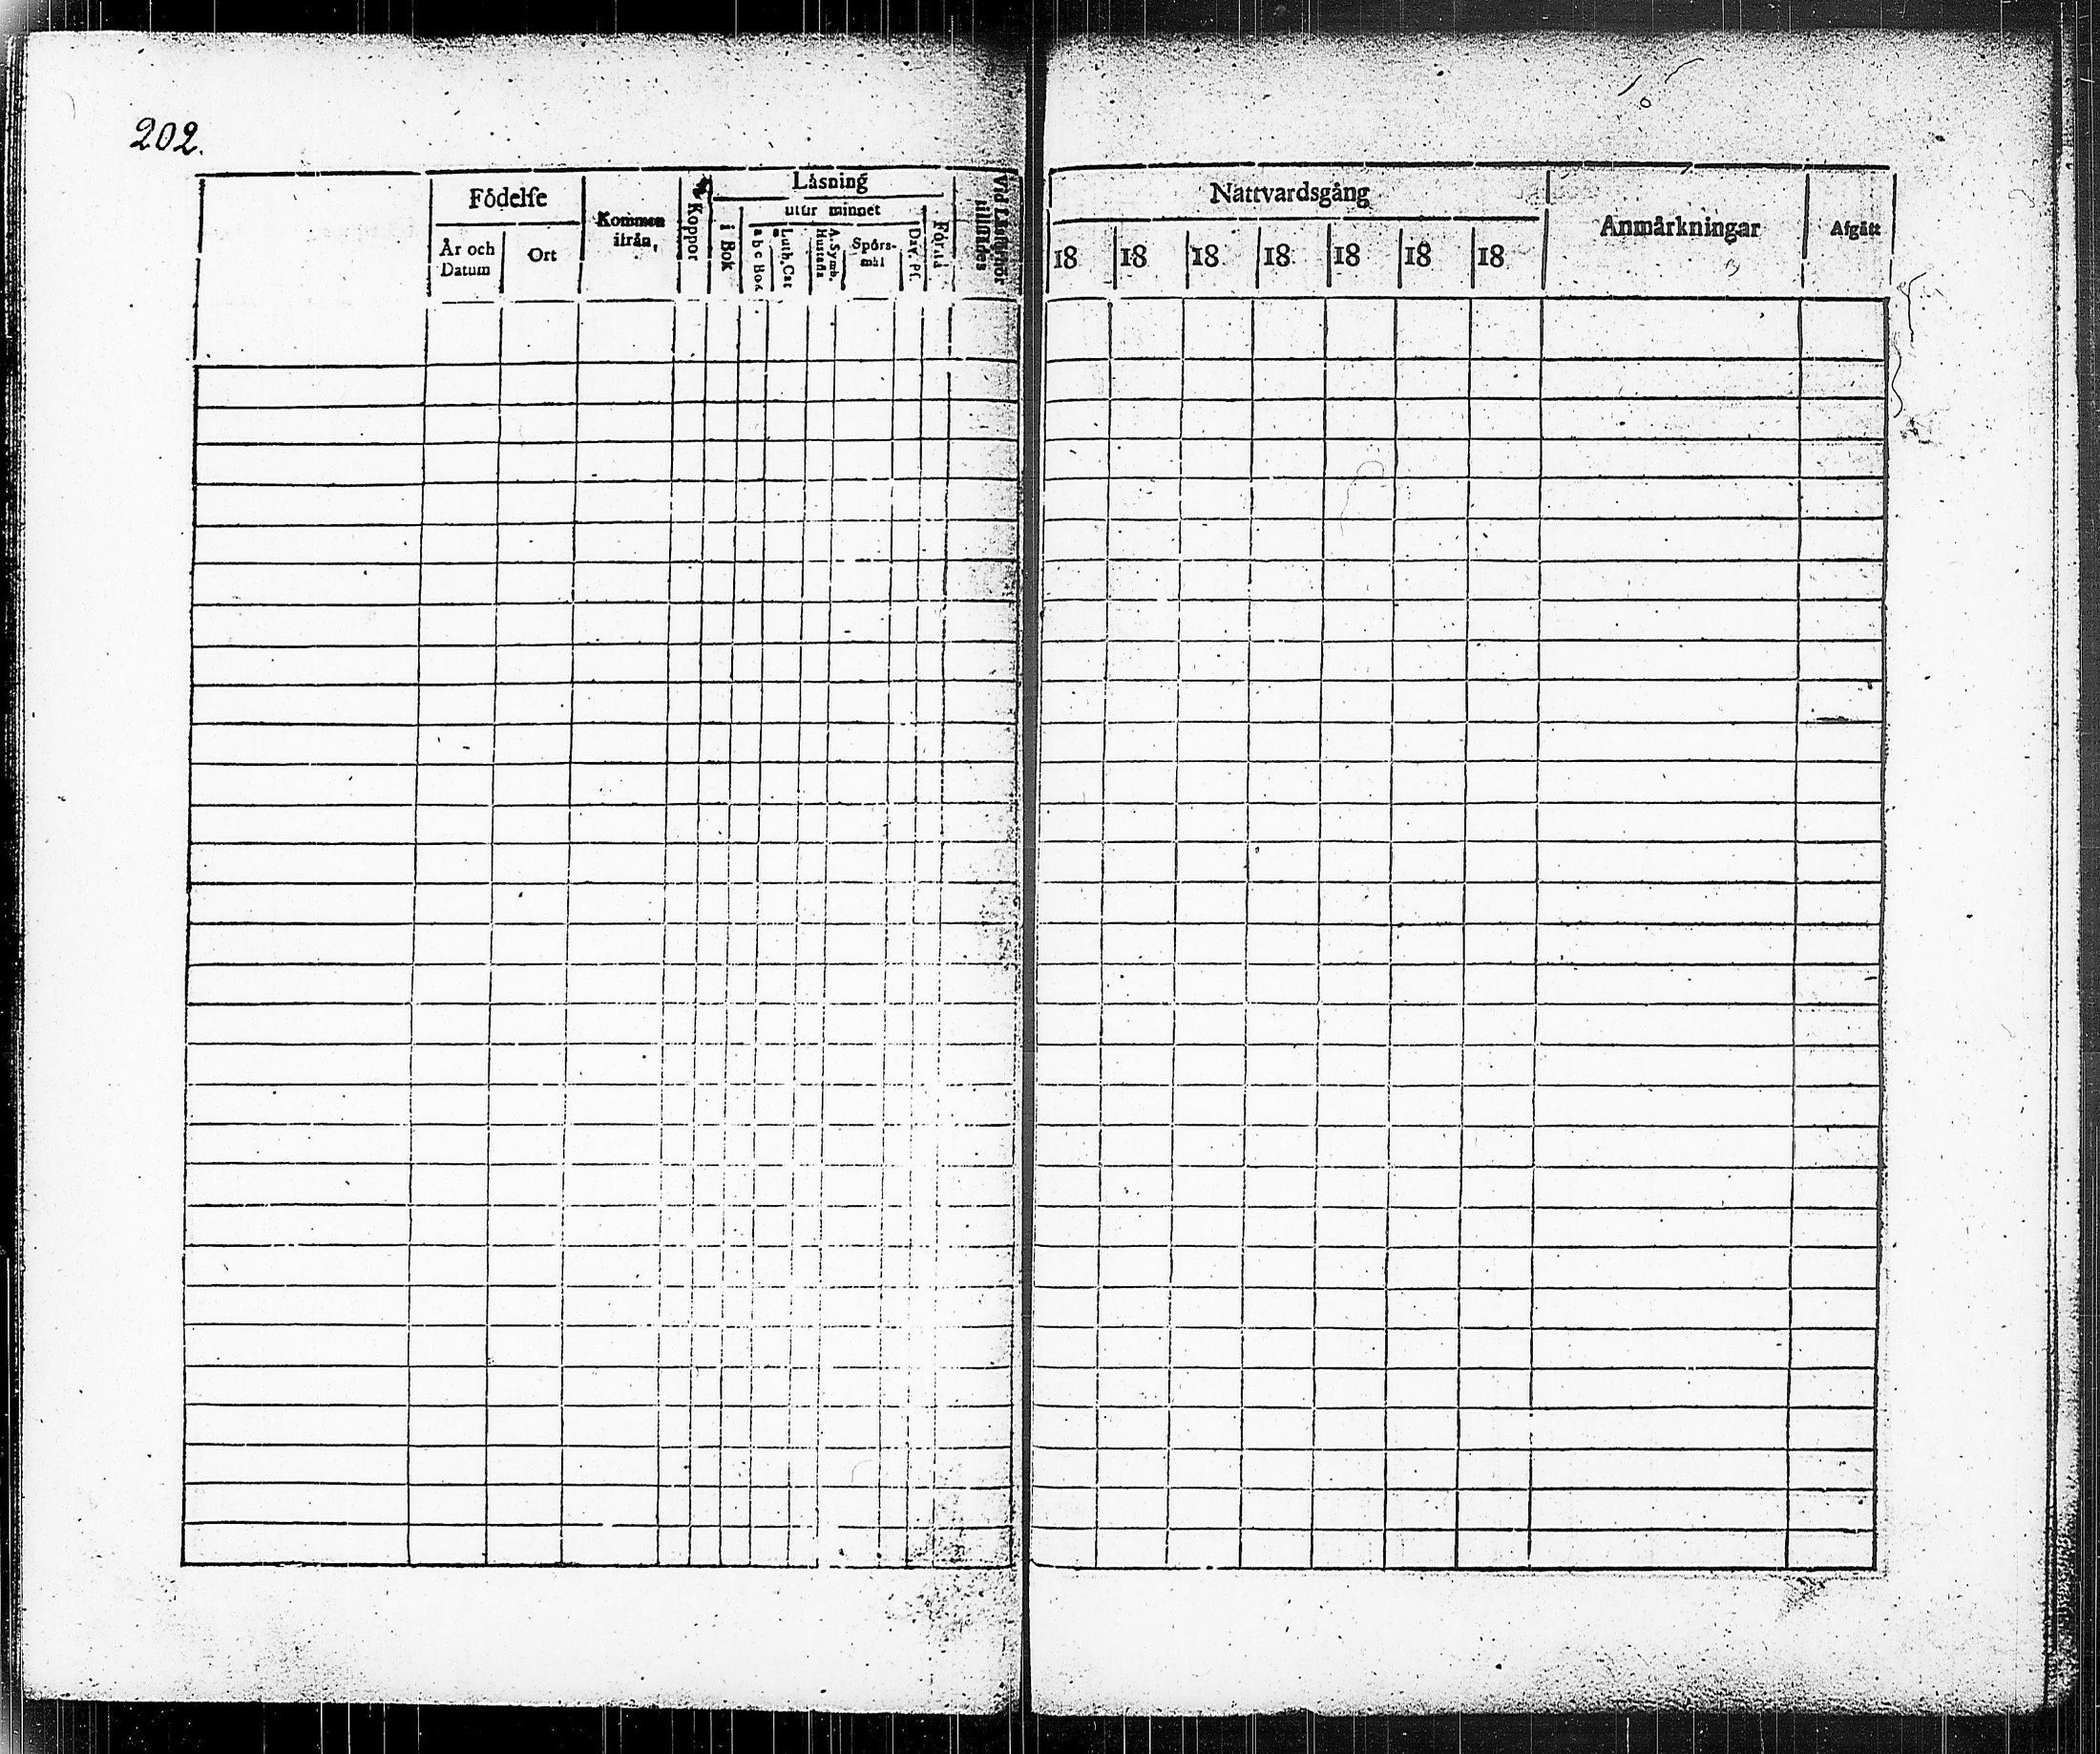 202.
Födelse
År och Datum
Ort
Kommen ifrån,
Koppor
Läsning
i Bok
utur minnet
a b c Bok
Luth. Cat
A. Symb. Hustafla
Spörs-mål
Dav. Ps.
Förstå
Vid Läsförhör tillstädes
Nattvardsgång
18 18 18 18 18 18 18
Anmärkningar
Afgått